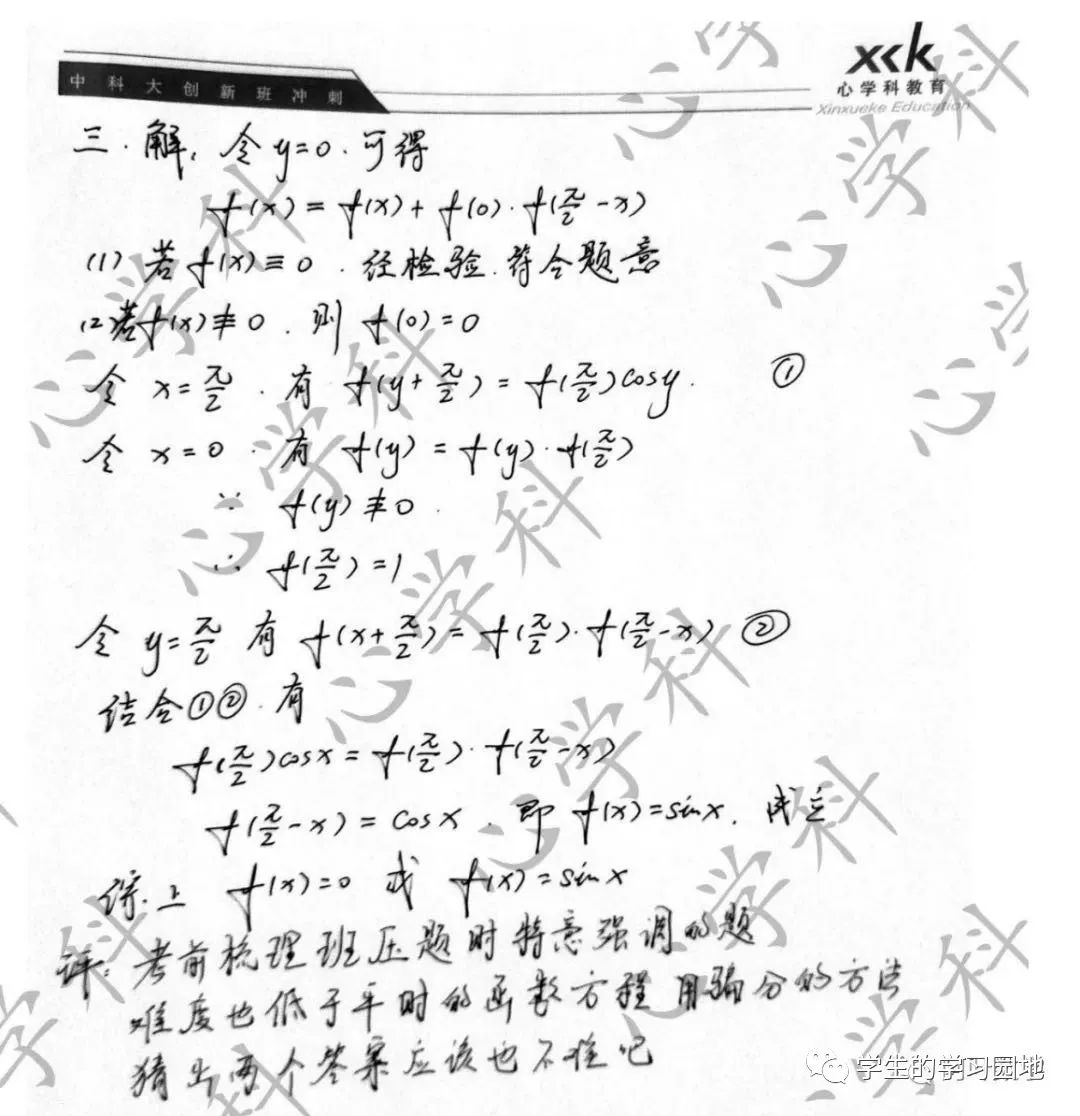 中科大创新班冲刺
xck
心学科教育
Xinxueke Education
三.解:令y=0.可得
f(x)=f(x)+f(0)·f(π/2-x)
(1)若f(x)≡0.经检验.符合题意
(2)若f(x)≢0.则f(0)=0
令x=π/2.有f(y+π/2)=f(π/2)cosy. ①
令x=0.有f(y)=f(y)·f(π/2)
∵f(y)≢0.
∴f(π/2)=1
令y=π/2有f(x+π/2)=f(π/2)·f(π/2-x) ②
结合①②.有
f(π/2)cosx=f(π/2)·f(π/2-x)
f(π/2-x)=cosx.即f(x)=sinx.成立
综上f(x)=0或f(x)=sinx
评:考前梳理班压题时特意强调的题
难度也低于平时的函数方程用骗分的方法
猜出两个答案应该也不难吧
心学科
学生的学习园地